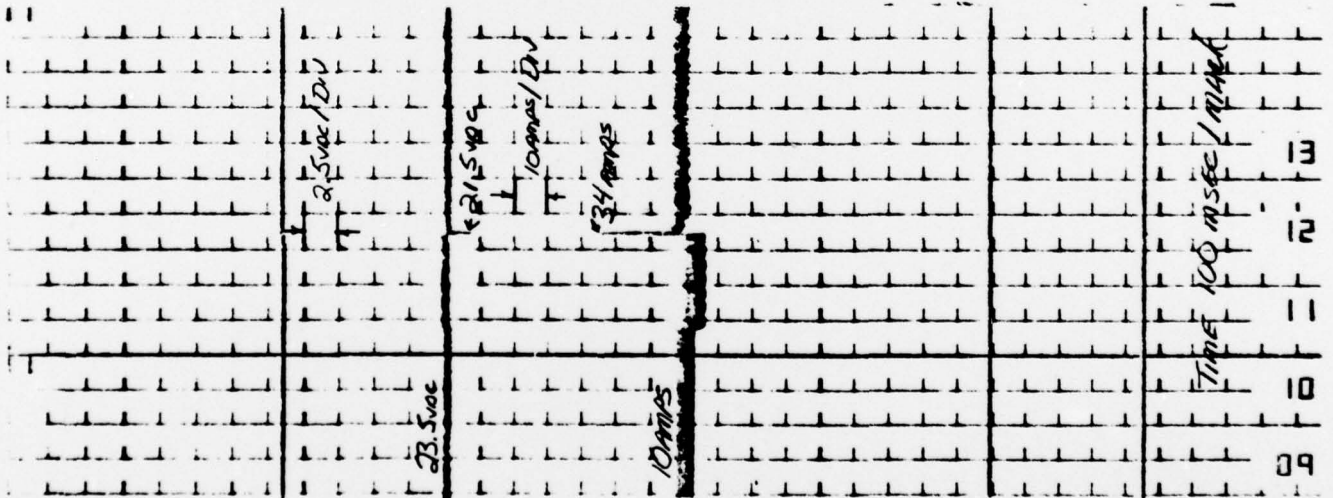 2.5VDC/DIV
23.5VDC
21.5VDC
10AMPS/DIV
34AMPS
10AMPS
TIME 100 MSEC/MARK
13
12
11
10
09